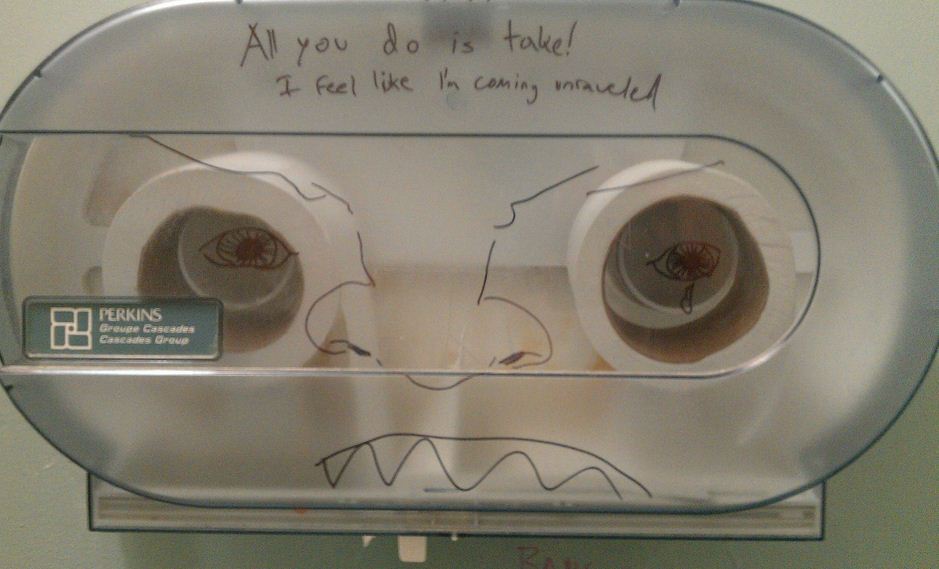 All you do is take!
I feel like I'm coming unraveled
PERKINS
Groupe Cascades
Cascades Group